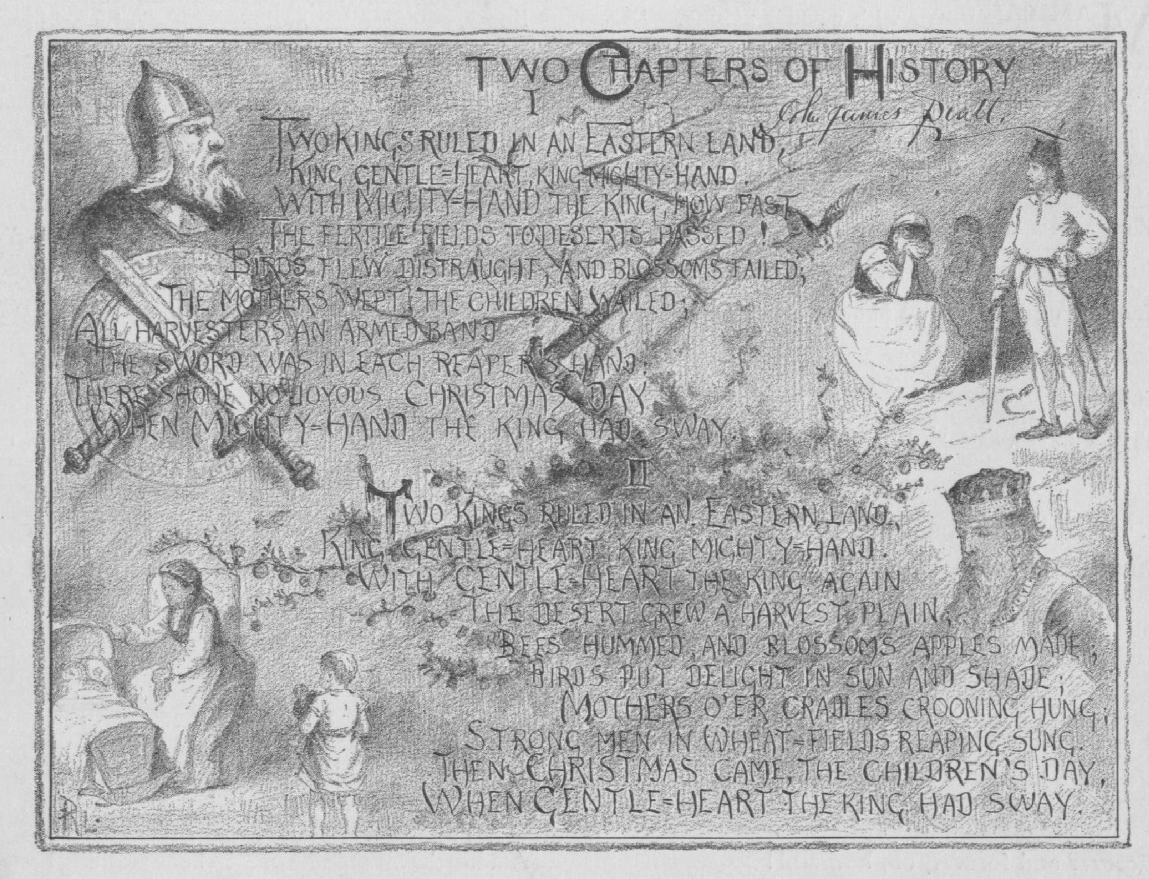 TWO CHAPTERS OF HISTORY
John James Piatt.
I
TWO KINGS RULED IN AN EASTERN LAND,
KING GENTLE=HEART, KING MIGHTY=HAND.
WITH MIGHTY=HAND THE KING, HOW FAST
THE FERTILE FIELDS TO DESERTS PASSED!
BIRDS FLEW DISTRAUGHT, AND BLOSSOMS FAILED;
THE MOTHERS WEPT, THE CHILDREN WAILED;
ALL HARVESTERS AN ARMED BAND
THE SWORD WAS IN EACH REAPER'S HAND:
THERE SHONE NO JOYOUS CHRISTMAS DAY
WHEN MIGHTY=HAND THE KING HAD SWAY.
II
TWO KINGS RULED IN AN EASTERN LAND,
KING GENTLE=HEART, KING MIGHTY=HAND.
WITH GENTLE=HEART THE KING AGAIN
THE DESERT GREW A HARVEST PLAIN,
BEES HUMMED, AND BLOSSOMS APPLES MADE;
BIRDS PUT DELIGHT IN SUN AND SHADE;
MOTHERS O'ER CRADLES CROONING HUNG;
STRONG MEN IN WHEAT=FIELDS REAPING SUNG.
THEN CHRISTMAS CAME, THE CHILDREN'S DAY,
WHEN GENTLE=HEART THE KING HAD SWAY.